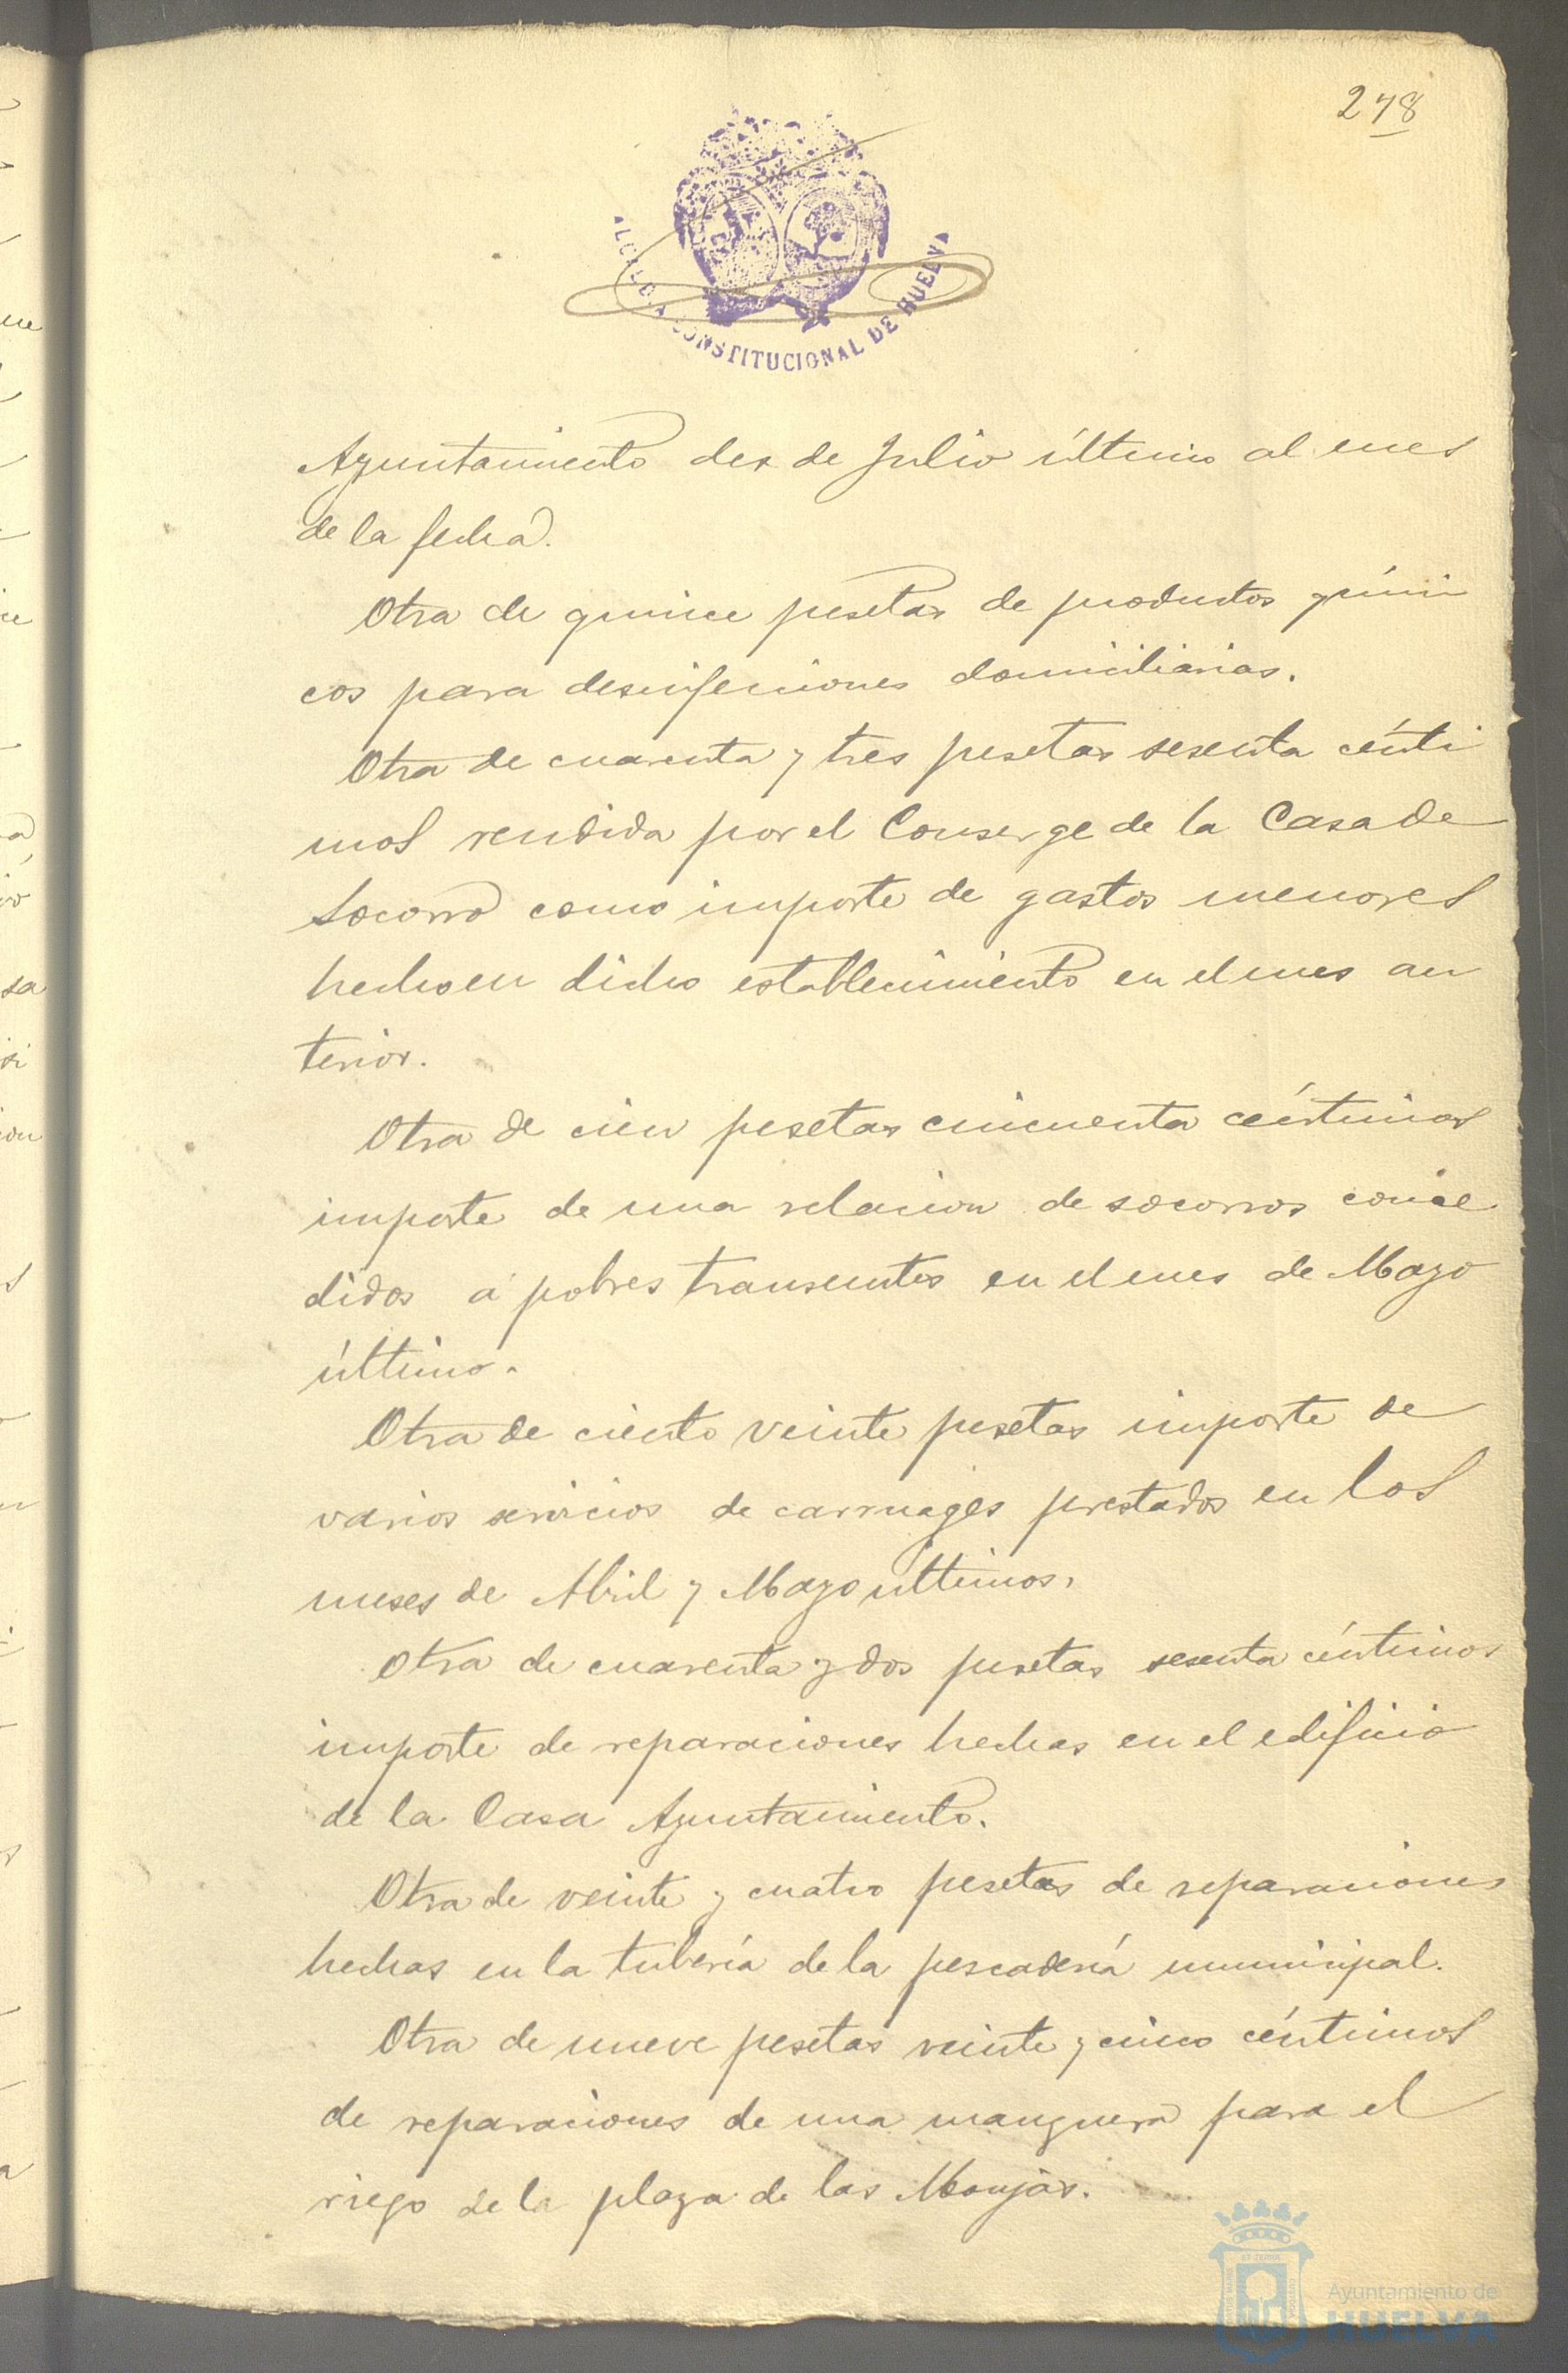 278
ALCALDIA CONSTITUCIONAL DE HUELVA
Ayuntamiento des de Julio último al mes
de la fecha.
Otra de quince pesetas de productos quími
cos para desinfecciones domiciliarias.
Otra de cuarenta y tres pesetas sesenta cénti
mos rendida por el Conserge de la Casa de
Socorro como importe de gastos menores
hecho en dicho establecimiento en el mes an
terior.
Otra de cien pesetas cincuenta céntimos
importe de una relacion de socorros conce
didos á pobres transeuntes en el mes de Mayo
último.
Otra de ciento veinte pesetas importe de
varios servicios de carruages prestados en los
meses de Abril y Mayo ultimos.
Otra de cuarenta y dos pesetas sesenta céntimos
importe de reparaciones hechas en el edificio
de la Casa Ayuntamiento.
Otra de veinte y cuatro pesetas de reparaciones
hechas en la tubería de la pescadería municipal.
Otra de nueve pesetas veinte y cinco céntimos
de reparaciones de una manguera para el
riego de la plaza de las Monjas.
Ayuntamiento de
HUELVA